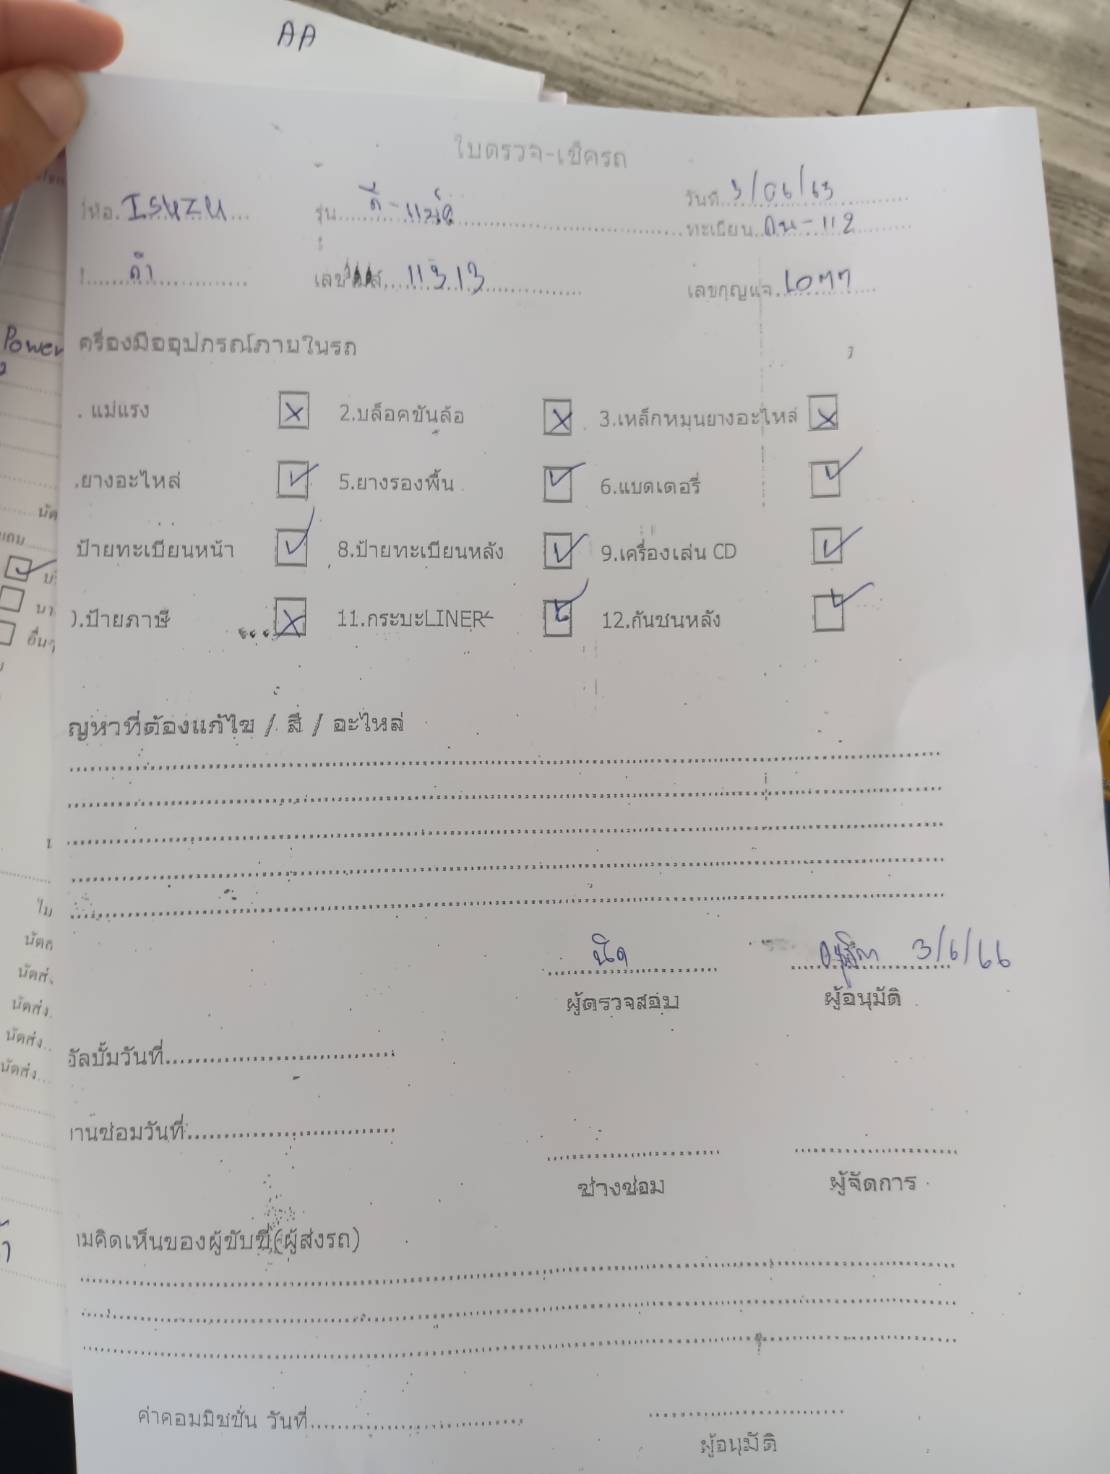 AA
ใบตรวจ-เช็ครถ
ISUZU รุ่น ดี-แม็ค วันที่ 3/06/63
ทะเบียน 112
ดำ เลข 11313 เลขกุญแจ
Power
ครื่องมืออุปกรณ์ภายในรถ
. แม่แรง ☒ 2.บล็อคขันล้อ ☒ 3.เหล็กหมุนยางอะไหล่ ☒
.ยางอะไหล่ ☑ 5.ยางรองพื้น ☑ 6.แบตเตอรี่ ☑
ป้ายทะเบียนหน้า ☑ 8.ป้ายทะเบียนหลัง ☑ 9.เครื่องเล่น CD ☑
).ป้ายภาษี ☒ 11.กระบะLINER ☑ 12.กันชนหลัง ☑
ญหาที่ต้องแก้ไข / สี / อะไหล่
3/6/66
ผู้ตรวจสอบ ผู้อนุมัติ
อัลบั้มวันที่
านซ่อมวันที่
ช่างซ่อม ผู้จัดการ
ามคิดเห็นของผู้ขับขี่(ผู้ส่งรถ)
ค่าคอมมิชชั่น วันที่
ผู้อนุมัติ